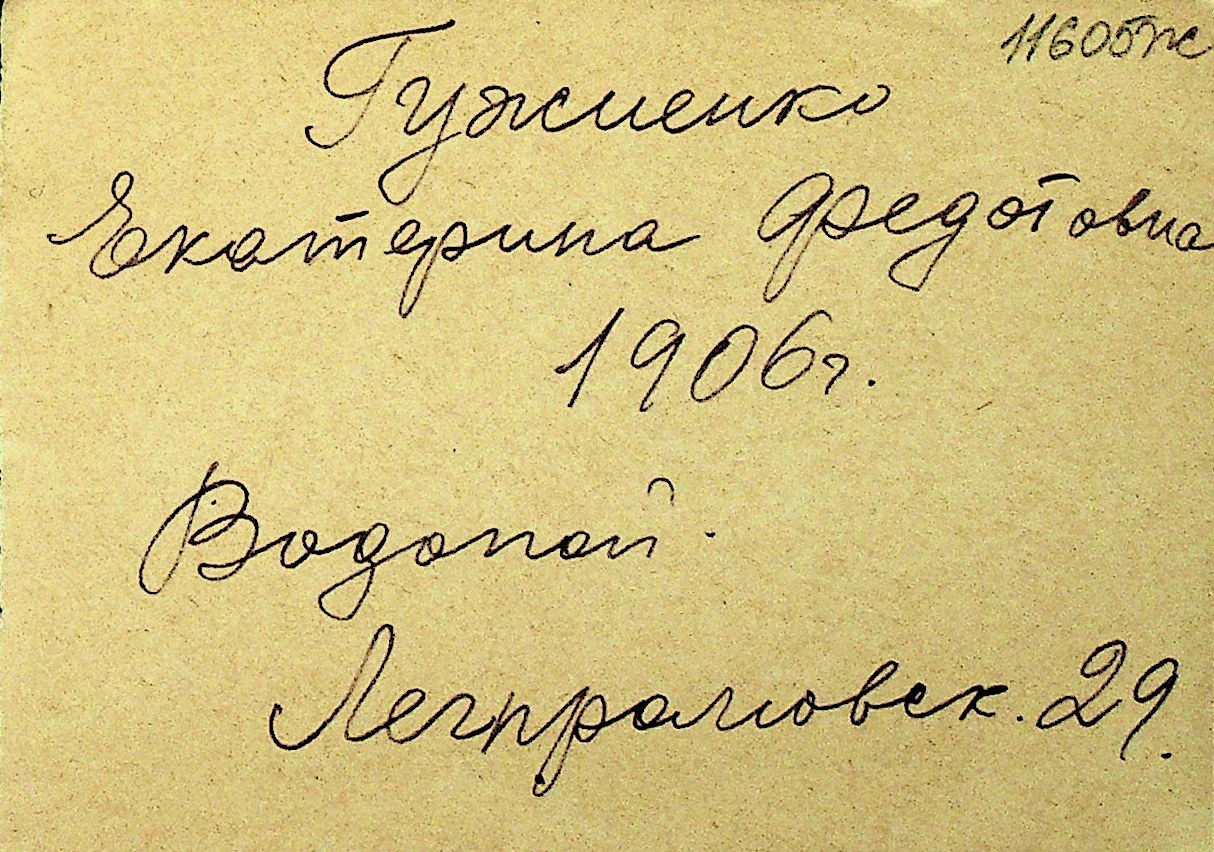 11605ж
Гужиенко
Екатерина Федотовна
1906г.
Водопой.
Легпромовск. 29.